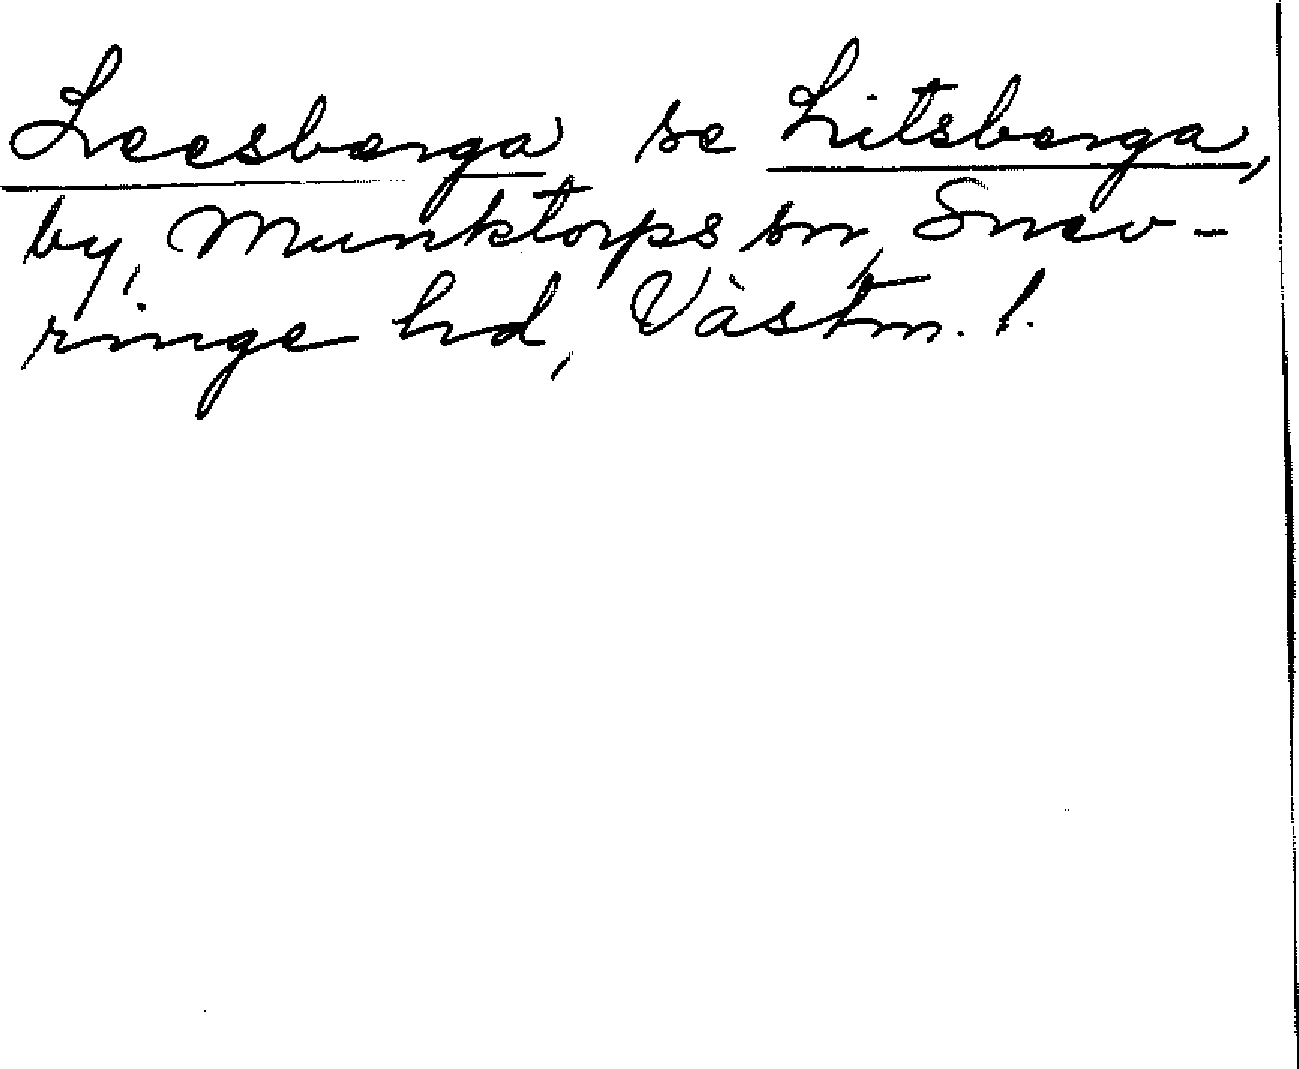 Leesberga se Litsberga,
by, Munktorps sn, Snev-
ringe hd, Västm. l.